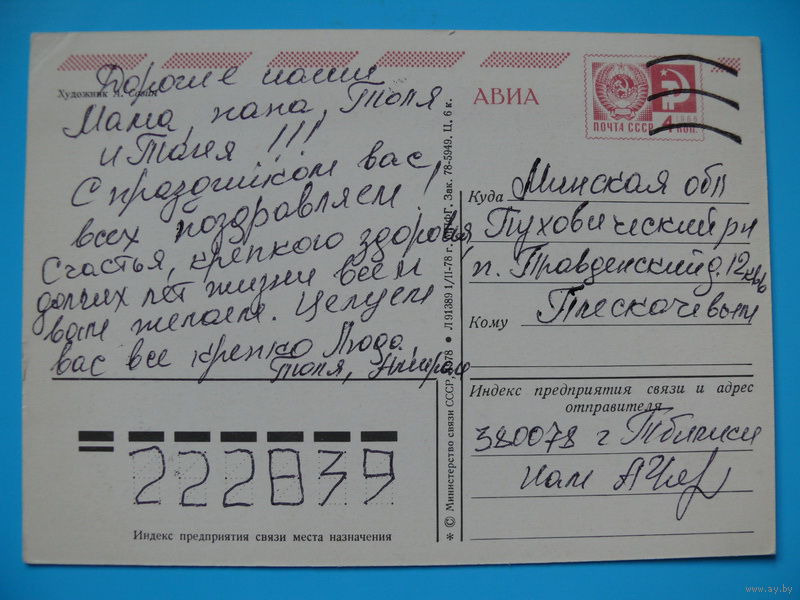 Художник А. Савин
Дорогие наши
Мама, папа, Толя
и Таня !!!
С праздником вас,
всех поздравляем
Счастья, крепкого здоровья,
долгих лет жизни всем
вам желаем. Целуем
вас все крепко Люда,
Толя,
АВИА
ПОЧТА СССР
1966
4 КОП.
Куда Минская обл
Пуховический рн
п. Правдинский д. 12 кв 6
Кому Плескачевым
Индекс предприятия связи и адрес
отправителя
380078 г Тбилиси
222839
Индекс предприятия связи места назначения
* © Министерство связи СССР, 1978 • Л 91389 1/II-78 г. Зак. 78-5949. Ц. 6 к.
www.ay.by